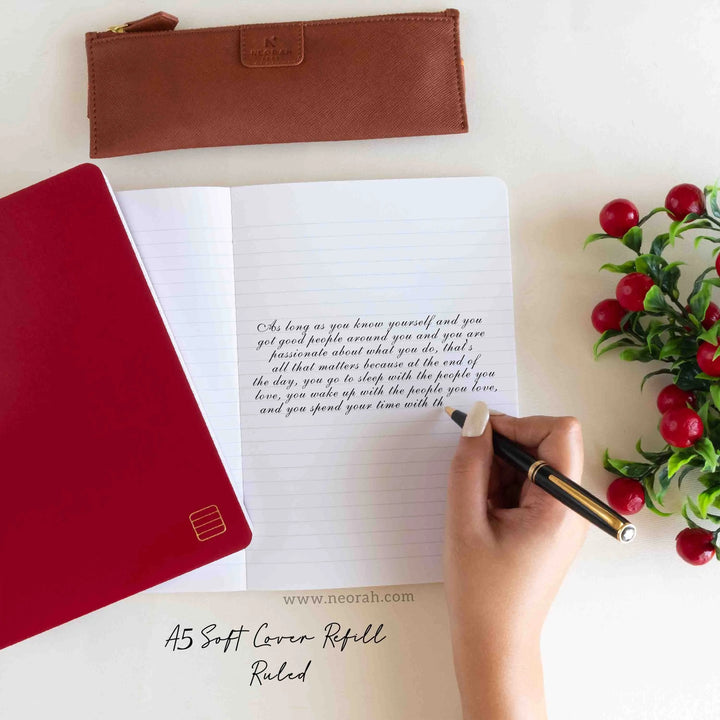 NEORAH
As long as you know yourself and you
got good people around you and you are
passionate about what you do, that's
all that matters because at the end of
the day, you go to sleep with the people you
love, you wake up with the people you love,
and you spend your time with th
www.neorah.com
A5 Soft Cover Refill
Ruled